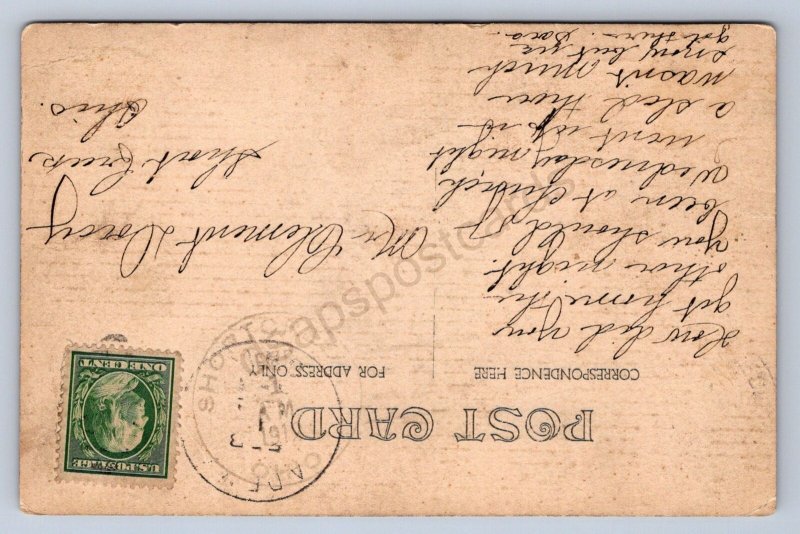 POST CARD
CORRESPONDENCE HERE
FOR ADDRESS ONLY
U.S. POSTAGE
ONE CENT
SHORT C
How did you
get home the
other night.
you should of
been at church
Wednesday night
went up in
a sled there
wasn't much
snow but we
got there. Dora
Mr Clement Dorsey
Short Creek
Ohio.
apspostcard